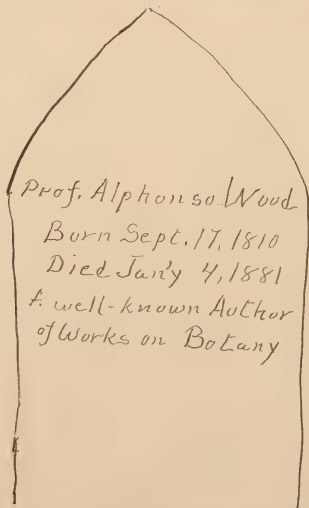 Prof. Alphonso Wood
Born Sept. 17, 1810
Died Jan'y 4, 1881
A well-known Author
of Works on Botany